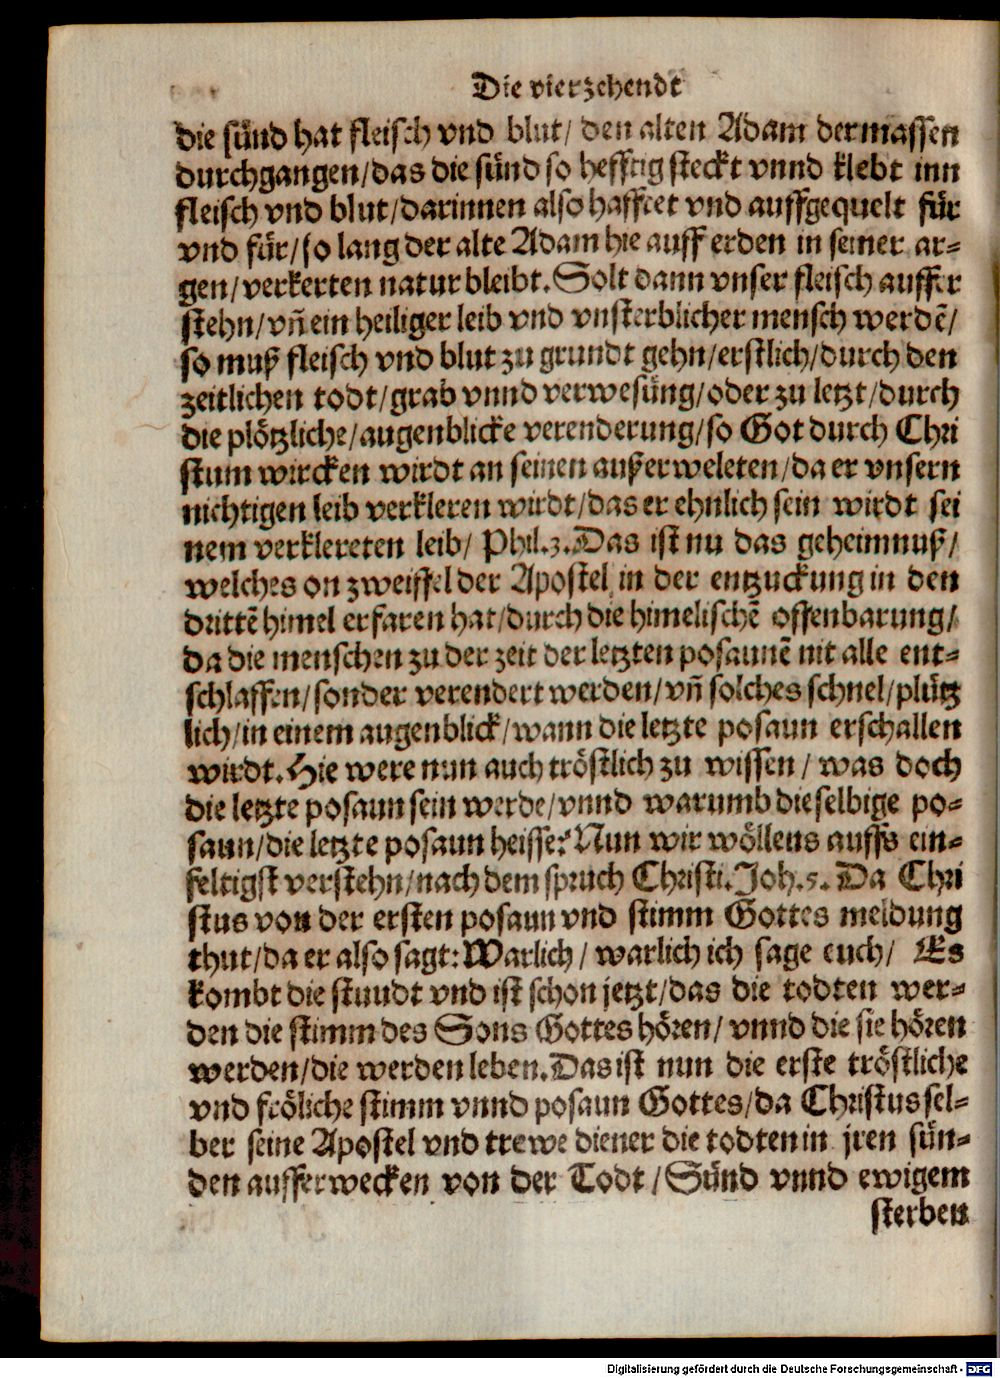 Die vierzehendt
die sünd hat fleisch vnd blut/ den alten Adam dermassen
durchgangen/das die sünd so hefftig steckt vnnd klebt inn
fleisch vnd blut/darinnen also hafftet vnd auffgequelt für
vnd für/so lang der alte Adam hie auff erden in seiner ar-
gen/verkerten natur bleibt. Solt dann vnser fleisch auffer
stehn/vñ ein heiliger leib vnd vnsterblicher mensch werdē/
so muß fleisch vnd blut zu grundt gehn/erstlich/durch den
zeitlichen todt/grab vnnd verwesüng/oder zu letzt/durch
die plötzliche/augenblicke verenderung/so Got durch Chri
stum wircken wirdt an seinen außerweleten/da er vnsern
nichtigen leib verkleren wirdt/das er ehnlich sein wirdt sei
nem verklereten leib/ Phil.3. Das ist nu das geheimnuß/
welches on zweiffel der Apostel in der entzuckung in den
drittē himel erfaren hat/durch die himelischē offenbarung/
da die menschen zu der zeit der letzten posaunē nit alle ent-
schlaffen/sonder verendert werden/vñ solches schnel/plütz
lich/in einem augenblick/wann die letzte posaun erschallen
wirdt. Hie were nun auch tröstlich zu wissen/ was doch
die letzte posaun sein werde/vnnd warumb dieselbige po-
saun/die letzte posaun heisse? Nun wir wöllens auffs ein-
feltigst verstehn/nach dem spruch Christi. Joh.5. Da Chri
stus von der ersten posaun vnd stimm Gottes meldung
thut/da er also sagt: Warlich/ warlich ich sage euch/ Es
kombt die stundt vnd ist schon jetzt/das die todten wer-
den die stimm des Sons Gottes hören/ vnnd die sie hören
werden/die werden leben. Das ist nun die erste tröstliche
vnd fröliche stimm vnnd posaun Gottes/da Christus sel-
ber seine Apostel vnd trewe diener die todten in jren sün-
den aufferwecken von der Todt/Sünd vnnd ewigem
sterben
Digitalisierung gefördert durch die Deutsche Forschungsgemeinschaft - DFG